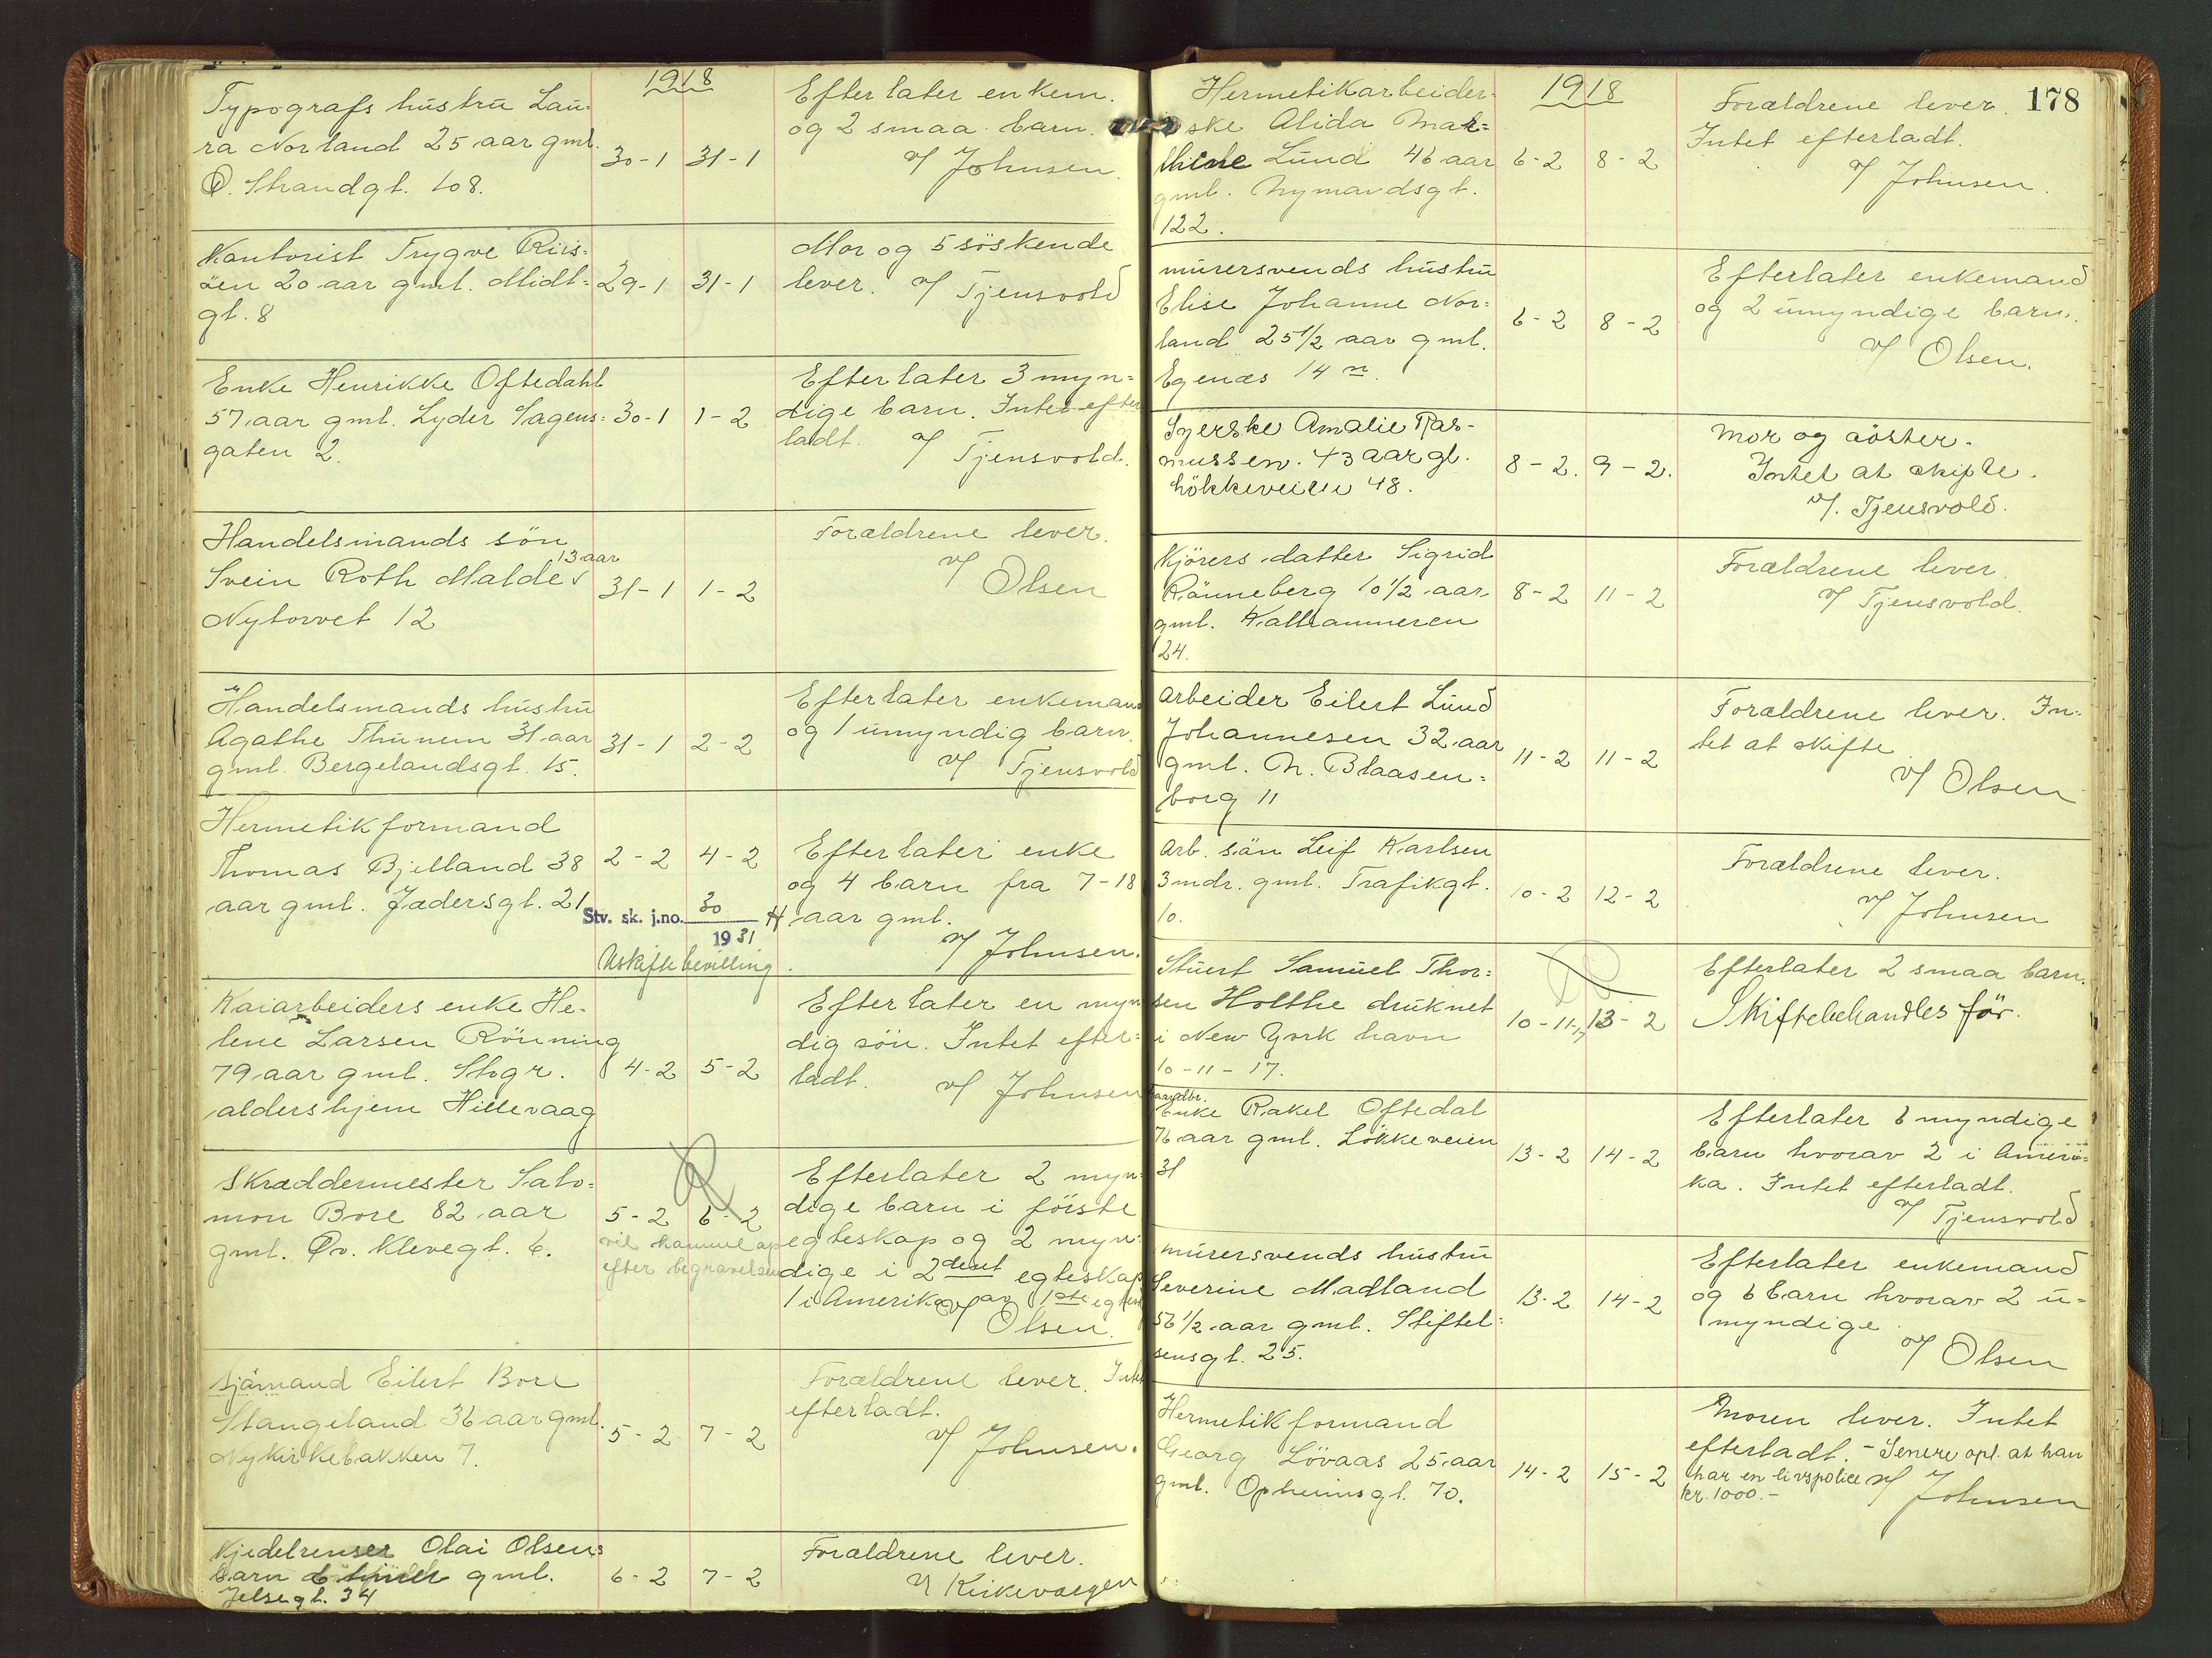 1918
Typografs hustru Lau-
ra Norland 25 aar gml.
Ø. Strandgt. 108.
30-1 31-1
Efterlater enkem.
og 2 smaa barn.
v/ Johnsen.
Kontorist Trygve Riis-
öen 20 aar gml. Midt-
gt. 8
29-1 31-1
Mor og 5 söskende
lever. v/ Tjensvold
Enke Henrikke Oftedahl
57 aar gml. Lyder Sagens-
gaten 2.
30-1 1-2
Efterlater 3 myn-
dige barn. Intet efter
ladt. v/ Tjensvold.
Handelsmands sön
13 aar
Svein Roth Malde
Nytorvet 12
31-1 1-2
Forældrene lever.
v/ Olsen
Handelsmands hustru
Agathe Thunem 31 aar
gml. Bergelandsgt. 15.
31-1 2-2
Efterlater enkemand
og 1 umyndig barn.
v/ Tjensvold
Hermetikformand
Thomas Bjelland 38
aar gml. Jædersgt. 21
2-2 4-2
Stv. sk. j.no. 30
1931
Uskiftebevilling.
Efterlater enke
og 4 barn fra 7-18
aar gml.
v/ Johnsen.
Kaiarbeiders enke He-
lene Larsen Rönning
79 aar gml. Stogr.
aldershjem Hillevaag
4-2 5-2
Efterlater en myn
dig sön. Intet efter-
ladt. v/ Johnsen
Skræddermester Salo-
mon Bore 82 aar
gml. Øv. Klevegt. 6.
5-2 6-2
vil komme op
efter begravelsen
Efterlater 2 myn-
dige barn i förste
egteskap og 2 myn-
dige i 2det egteskap
1 i Amerika av 1ste egtesk
v/ Olsen.
Sjömand Eilert Bore
Stangeland 36 aar gml.
Nykirkebakken 7.
5-2 7-2
Forældrene lever. Intet
efterladt.
v/ Johnsen.
Kjedelrenser Olai Olsens
barn 6 gml.
Jelsegt. 34
6-2 7-2
Forældrene lever.
v/ Kirkevaagen
178
1918
Hermetikarbeider-
ske Alida Mar-
thine Lund 46 aar
gml. Nymandsgt.
122.
6-2 8-2
Forældrene lever.
Intet efterladt.
v/ Johnsen.
Murersvends hustru
Elise Johanne Nor-
land 25 1/2 aar gml.
Egenæs 14 n.
6-2 8-2
Efterlater enkemand
og 2 umyndige barn.
v/ Olsen.
Syerske Amalie Ras-
mussen. 43 aar gl.
Lökkeveien 48.
8-2. 9-2.
Mor og söster.
Intet at skifte.
v/. Tjensvold.
Kjörers datter Sigrid
Rönneberg 10 1/2 aar
gml. Kalhammeren
24.
8-2 11-2
Forældrene lever.
v/ Tjensvold.
Arbeider Eilert Lund
Johannesen 32 aar
gml. N. Blaasen-
borg 11
11-2 11-2
Forældrene lever. In-
tet at skifte
v/ Olsen
Arb. sön Leif Karlsen
3 mdr. gml. Trafikgt.
10.
10-2 12-2
Forældrene lever.
v/ Johnsen
Stuert Samuel Thor-
sen Holthe druknet
i New York havn
10-11-17.
10-11-17 13-2
Efterlater 2 smaa barn.
Skiftebehandles för.
Gaardbr.
Enke Rakel Oftedal
76 aar gml. Lökkeveien
31
13-2 14-2
Efterlater 6 myndige
barn hvorav 2 i Ameri-
ka. Intet efterladt.
v/ Tjensvold
Murersvends hustru
Severine Madland
56 1/2 aar gml. Stiftel-
sensgt. 25.
13-2 14-2
Efterlater enkemand
og 6 barn hvorav 2 u-
myndige
v/ Olsen
Hermetikformand
Georg Lövaas 25 aar
gml. Opheimsgt. 70.
14-2 15-2
Moren lever. Intet
efterladt. - Senere opl. at han
har en livspolice v/ Johnsen
kr. 1000.-